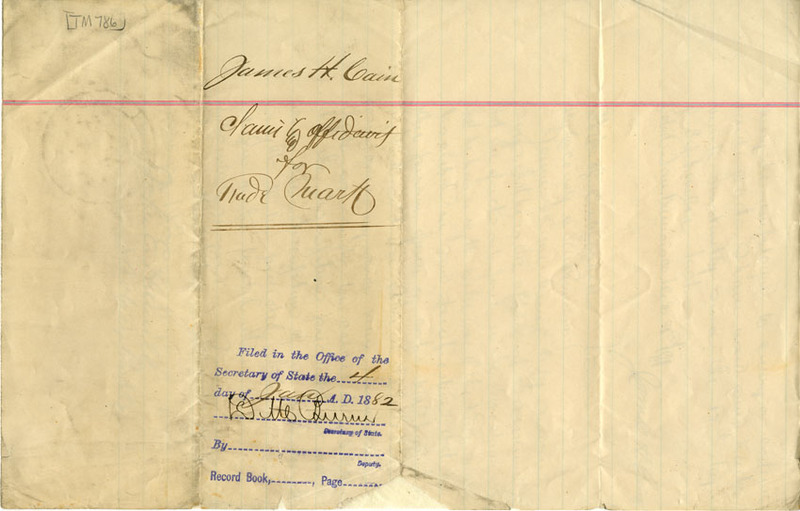 [TM 786]
James H. Cain
Claim & Affidavit
for
Trade Mark
Filed in the Office of the
Secretary of State the 4
day of Jany A. D. 1882
Secretary of State.
By
Deputy.
Record Book, , Page